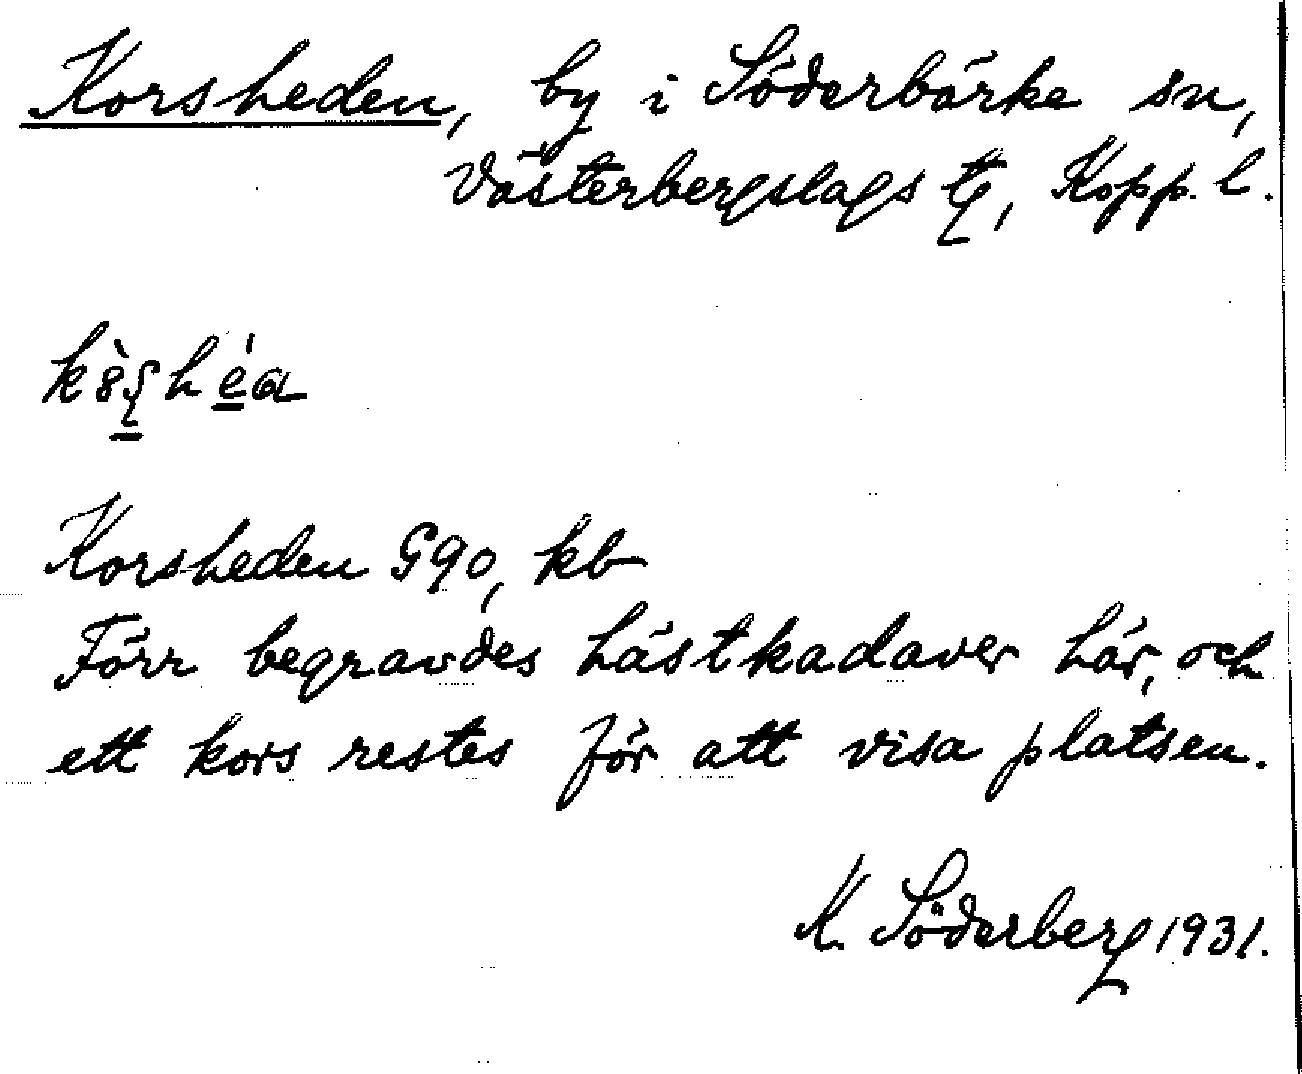 Korsheden, by i Söderbärke sn,
Västerbergslags tg, Kopp. l.
Korsheden G90, kb
Förr begravdes hästkadaver här, och
ett kors restes för att visa platsen.
K. Söderberg 1931.